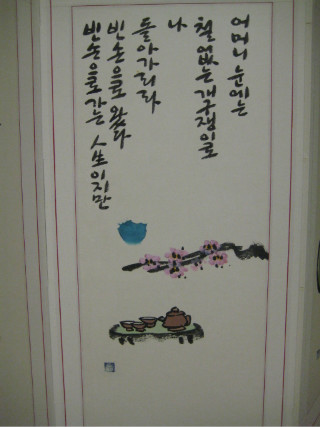 어머니 눈에는
철없는 개구쟁이로
나
돌아가리라
빈손으로 왔다
빈손으로 가는 人生이지만